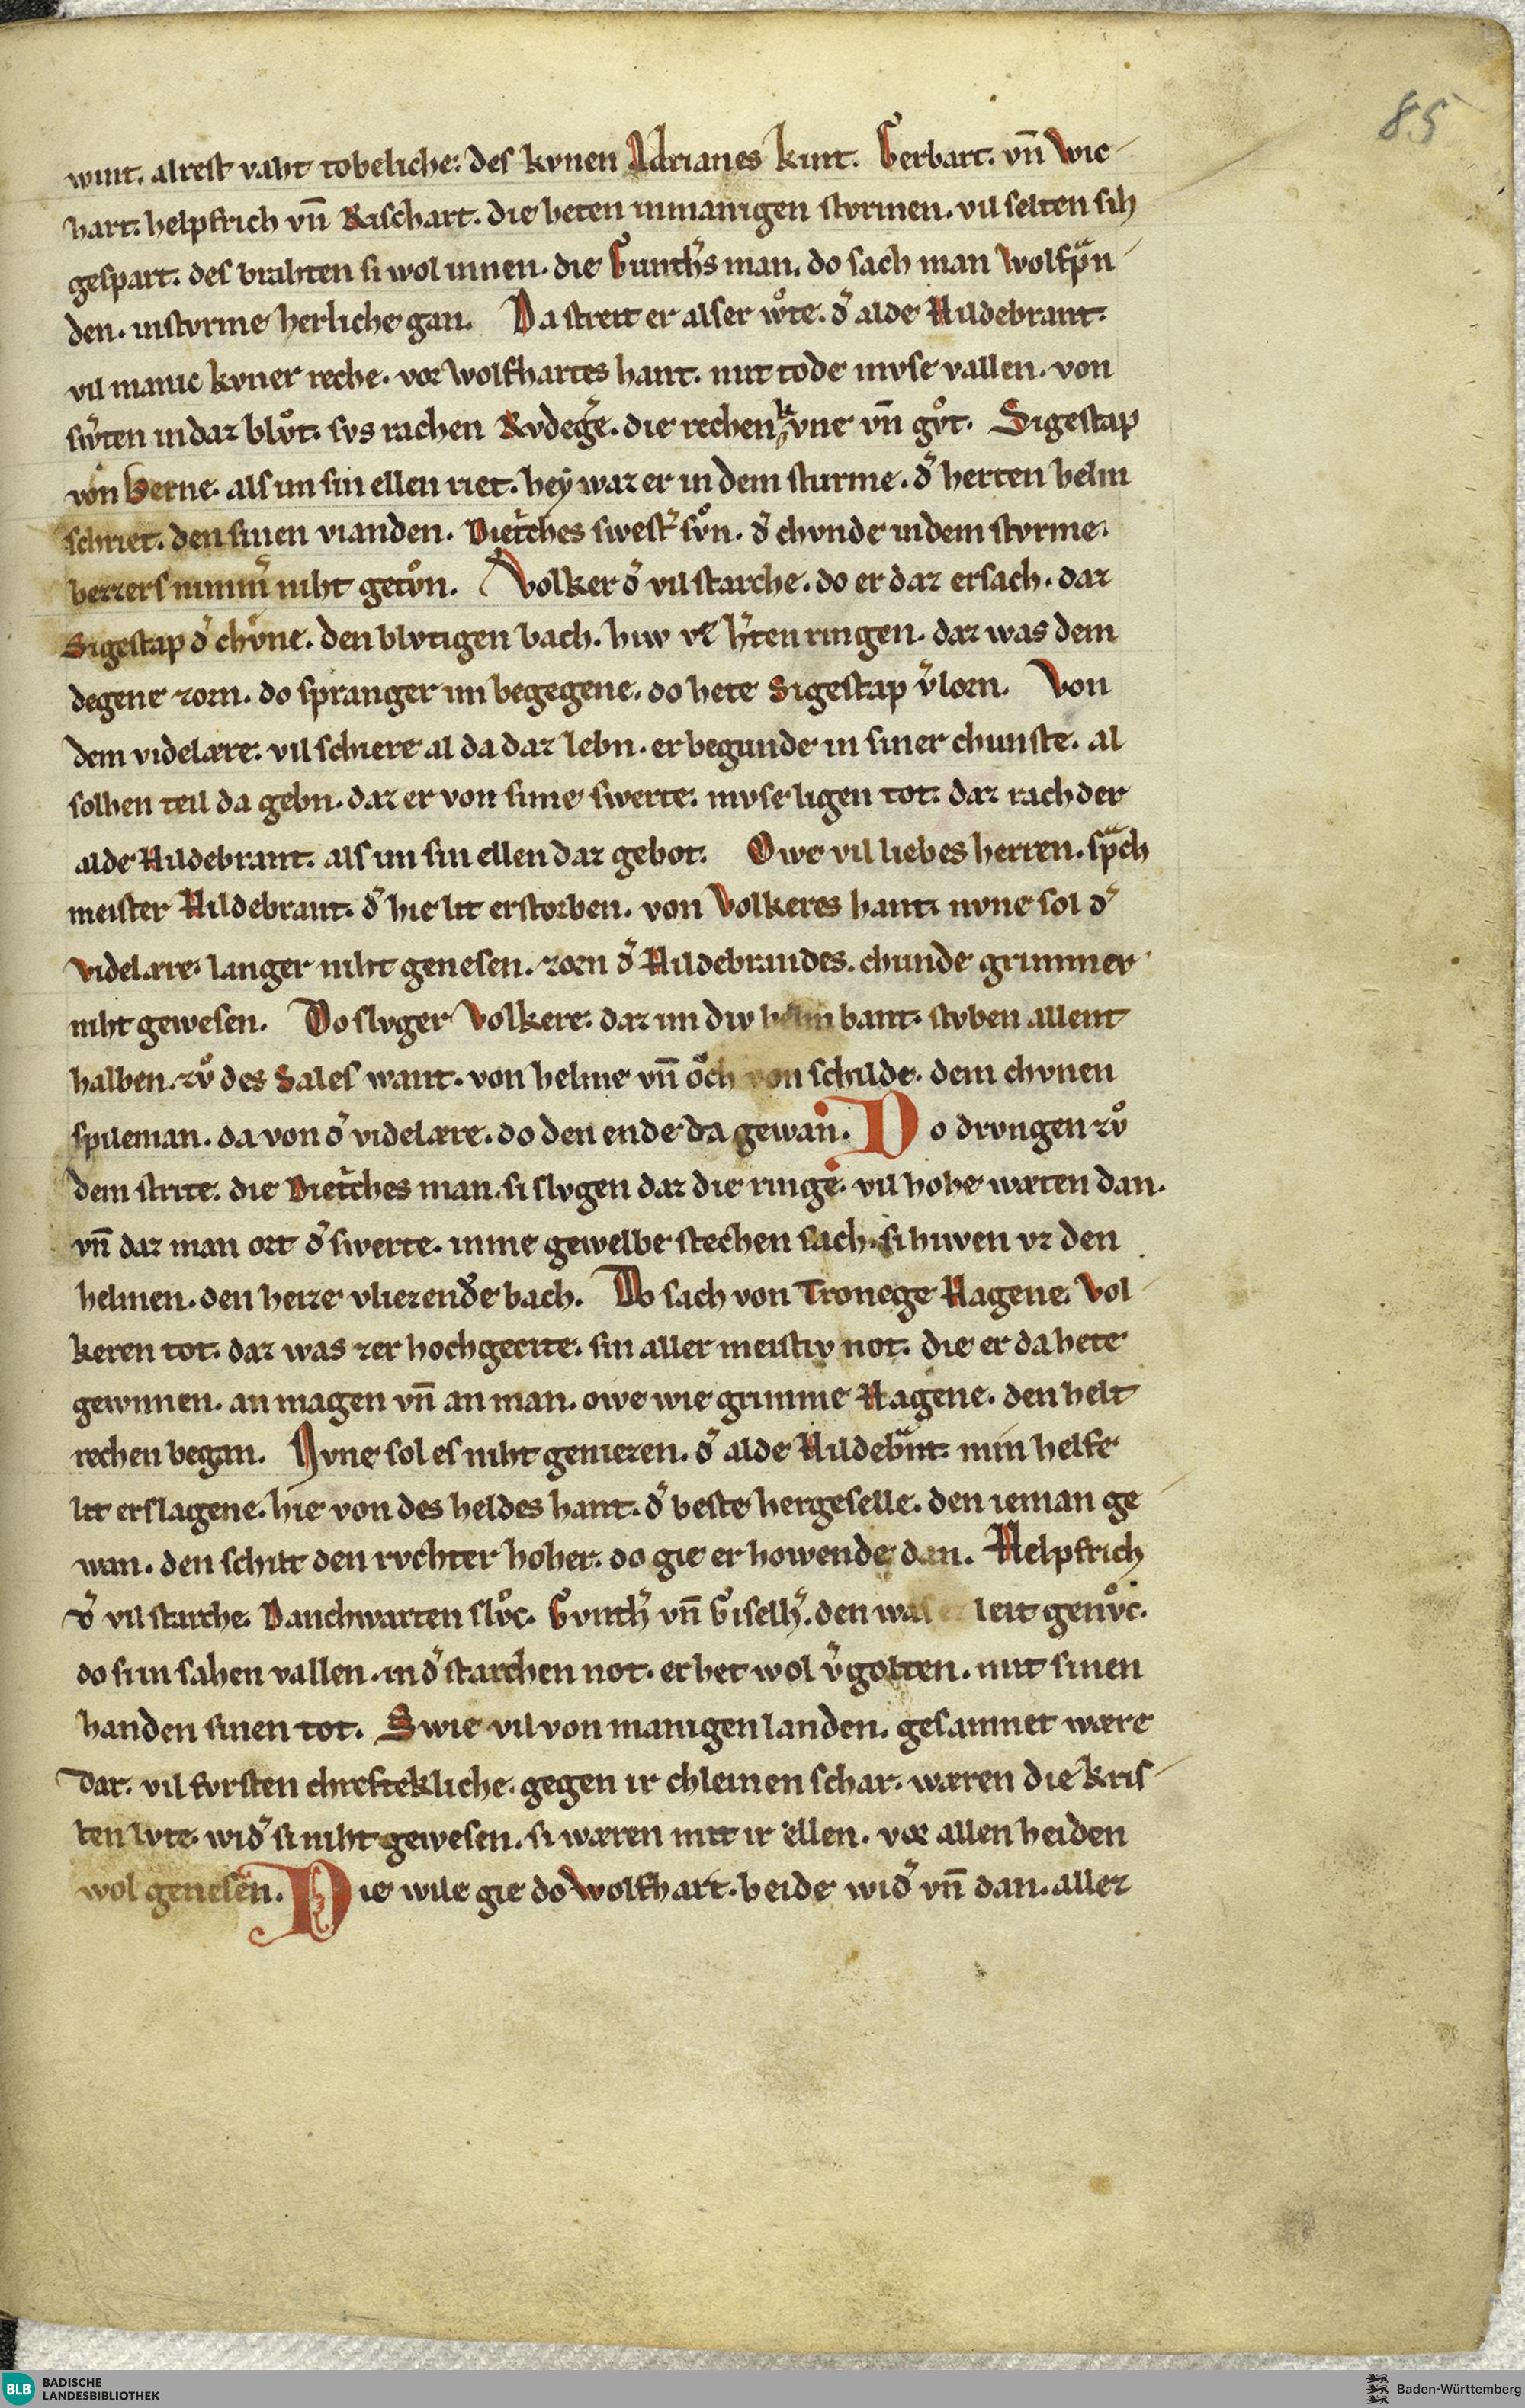 85
wint. alrest vaht tobeliche. des kvnen Adrianes kint. Gerbart. vn̄ Wic
hart. helpfrich vn̄ Rischart. die heten inmanigen stvrmen. vil selten sih
gespart. des brahten si wol innen. die Gunth͛s man. do sach man Wolfpͣn
den. instvrme herliche gan. Da streit er alser wͦte. d͛ alde Hildebrant.
vil manic kvner reche. vor Wolfhartes hant. mit tode mvse vallen. von
sw͛ten indaz blvͦt. svs rachen Rvdeg͛e. die rechen kvne vn̄ gvͦt. Sigestap
von Berne. als im sin ellen riet. hey waz er in dem sturme. d͛ herten helm
schriet. den sinen vianden. Dietͥches swest͛ svͦn. d͛ chvnde indem stvrme.
bezzers nimm͛ niht getvͦn. Volker d͛ vil starche. do er daz ersach. daz
Sigestap d͛ chvͤne. den blvtigen bach. hiw vz h͛ten ringen. daz was dem
degene zorn. do spranger im begegene. do hete Sigestap v͛lorn. Von
dem videlære. vil schiere al da daz lebn. er begunde in siner chunste. al
solhen teil da gebn. daz er von sime swerte. mvse ligen tot. daz rach der
alde Hildebrant. als im sin ellen daz gebot. Owe vil liebes herren. spͣch
meister Hildebrant. d͛ hie lit erstorben. von Volkeres hant. nvne sol d͛
videlære. langer niht genesen. zorn d͛ Hildebrandes. chunde grimmer
niht gewesen. Do slvger Volkere. daz im div helm bant. stvben allent
halben. zvͦ des Sales want. von helme vn̄ oͮch von schilde. dem chvnen
spileman. da von d͛ videlære. do den ende da gewan. Do drvngen zvͦ
dem strite. die Dietͥches man. si slvgen daz die ringe. vil hohe wæten dan.
vn̄ daz man ort d͛ swerte. inme gewelbe stechen sach. si hiwen vz den
helmen. den heize vliezende bach. Do sach von Tronege Hagene. Vol
keren tot. daz was zer hochgecite. sin aller meistiv not. die er da hete
gewnnen. an magen vn̄ an man. owe wie grimme Hagene. den helt
rechen began. Nvne sol es niht geniezen. d͛ alde Hildebͣnt. min helfe
lit erslagene. hie von des heldes hant. d͛ beste hergeselle. den ieman ge
wan. den schilt den rvchter hoher. do gie er howende dan. Helpfrich
d͛ vil starche. Danchwarten slvͦc. Gvnth͛ vn̄ Giselh͛. den was ez leit genvͦc.
do si in sahen vallen. in d͛ starchen not. er het wol v͛golten. mit sinen
handen sinen tot. Swie vil von manigen landen. gesamnet wære
dar. vil fvrsten chreftekliche. gegen ir chleinen schar. wæren die kris
ten lvte. wid͛ si niht gewesen. si wæren mit ir ellen. vor allen heiden
wol genesen. Die wile gie do Wolfhart. beide wid͛ vn̄ dan. allez
BLB BADISCHE
LANDESBIBLIOTHEK
Baden-Württemberg